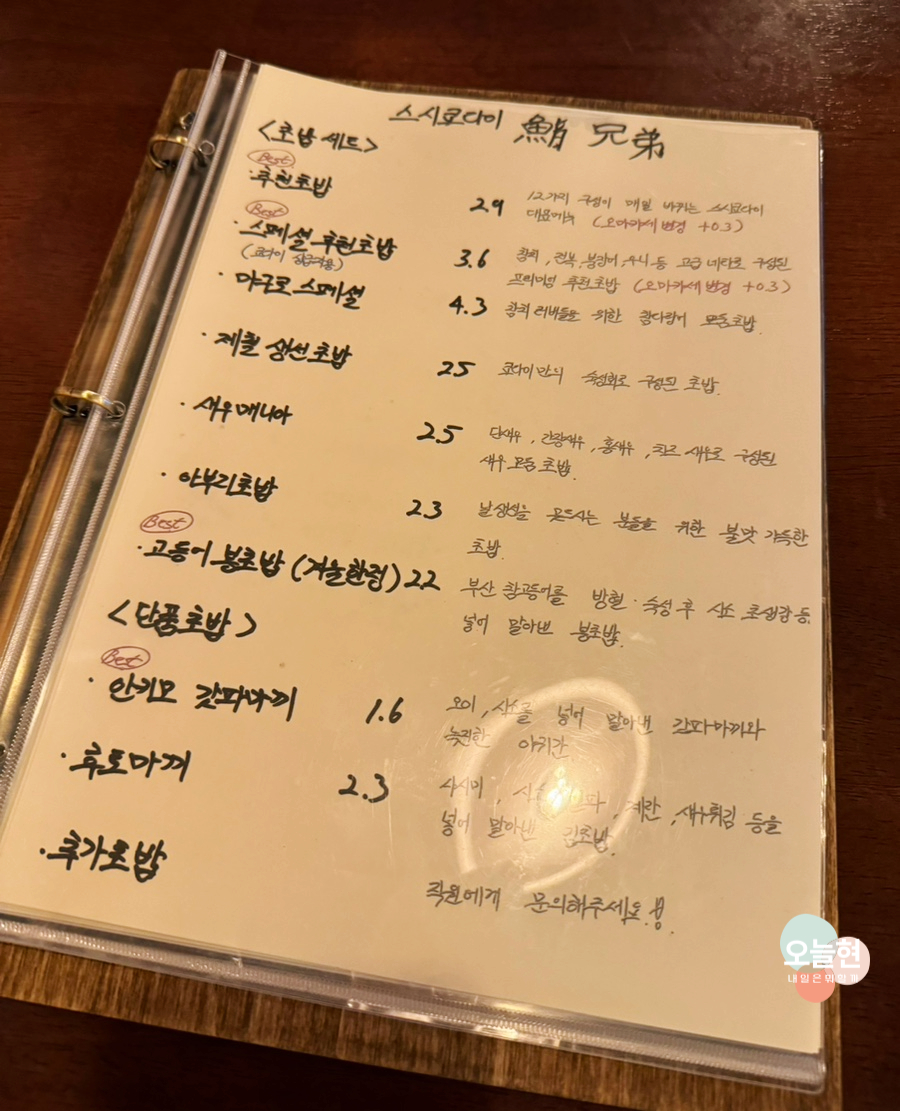 스시쿄다이 鮨 兄弟
<초밥 세트>
Best
· 추천초밥 2.9 12가지 구성이 매일 바뀌는 스시쿄다이
대표메뉴 (오마카세 변경 +0.3)
Best
· 스페셜 추천초밥 3.6 참치, 전복, 북방어, 우니 등 고급 네타로 구성된
프리미엄 추천초밥 (오마카세 변경 +0.3)
· 마구로 스페셜 4.3 참치 러버들을 위한 참다랑어 모둠초밥.
· 제철 생선초밥 2.5 쿄다이만의 숙성회로 구성된 초밥.
· 새우매니아 2.5 단새우, 간장새우, 홍새우, 치즈 새우로 구성된
새우 모둠 초밥.
· 아부리초밥 2.3 날생선을 못드시는 분들을 위한 불맛 가득한
초밥.
Best
· 고등어 봉초밥 (겨울한정) 2.2 부산 참고등어를 방혈·숙성 후 시소 초생강 등.
넣어 말아낸 봉초밥.
<단품초밥>
Best
· 안키모 갓파마끼 1.6 오이, 시소를 넣어 말아낸 갓파마끼와
녹진한 아귀간
· 후토마끼 2.3 사시미, 시소, 계란, 새우튀김 등을
넣어 말아낸 김초밥.
· 추가초밥 직원에게 문의해주세요!
오늘현
내일은뭐할까